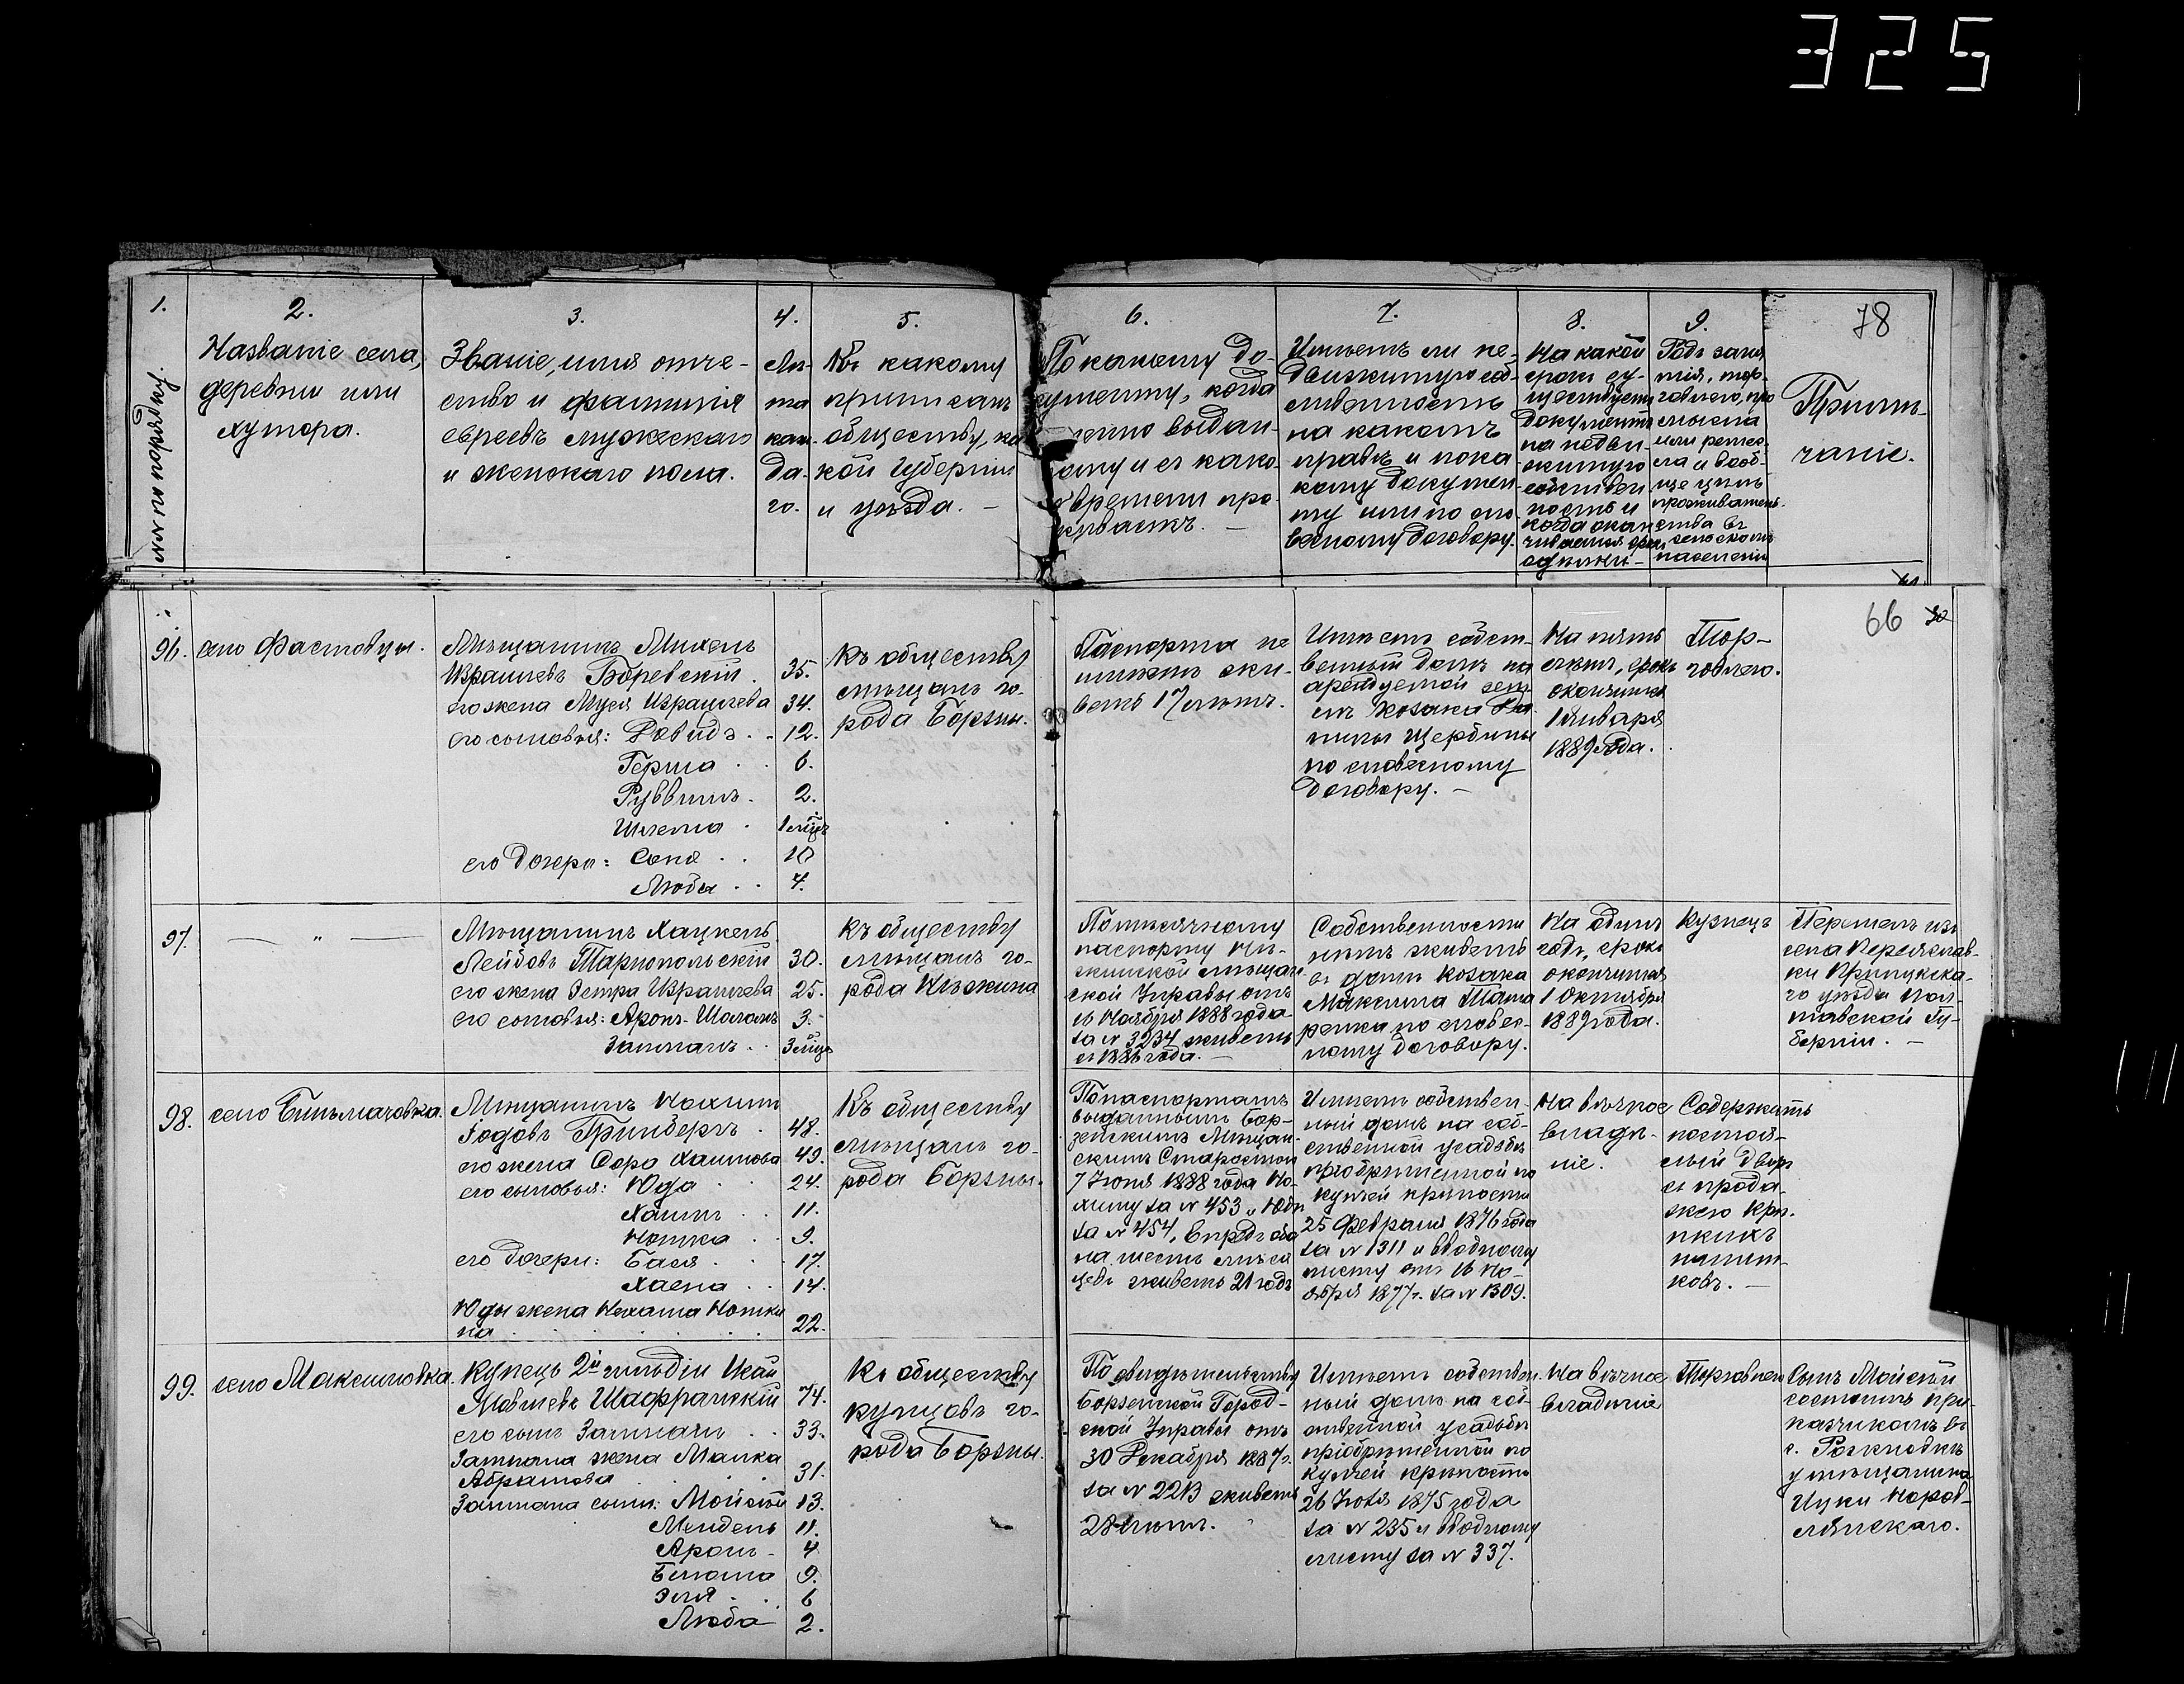 325
1.
№№ по порядку.
2.
Названіе села,
деревни или
хутора.
3.
Званіе, имя отче-
ство и фамилія
евреевъ мужскаго
и женскаго пола.
4.
Лѣ-
та
каж-
да-
го.
5.
Къ какому
приписанъ
обществу, ка
кой губерніи
и уѣзда. —
6.
По какому до-
кументу, когда
и кѣмъ выдан-
ному и съ како-
го времени про-
живаетъ. —
7.
Имѣетъ ли не-
движимую соб-
ственность
на какомъ
правѣ и по ка
кому докумен
ту или по сло-
весному договору.
8.
На какой
срокъ су-
ществуетъ
документъ
на недви-
жимую
собствен
ность и
когда окан
чивается срокъ
сдѣлки —
9.
Родъ заня
тія, тор-
говлею, про
мысла
или ремес-
ла и вооб-
ще цѣль
проживатель-
ства въ
сельскомъ
населеніи
78
Примѣ-
чаніе.
66
96.
село Фастовцы.
Мѣщанинъ Михель
Израилевъ Боревскій . 35.
его жена Муся Израилева 34.
его сыновья: Довидъ . . 12.
Герша . . 6.
Руввинъ . 2.
Шлема . 1 мѣсяц
его дочери: Соня . . 10
Люба . . 7.
Къ обществу
мѣщанъ го-
рода Борзны.
Паспорта не
имѣетъ жи-
ветъ 17 лѣтъ.
Имѣетъ собст-
венный домъ на
арендуемой зем
лѣ козака Да-
нилы Щербины
по словесному
договору. —
На пять
лѣтъ, срокъ
окончится
1 Января
1889 года.
Тор-
говлею.
97.
— " —
Мѣщанинъ Хацкель
Лейбовъ Тарнопольскій 30.
его жена Эстра Израилева 25.
его сыновья: Аронъ-Шоломъ 3.
Залманъ . . 3 мѣсяц
Къ обществу
мѣщанъ го-
рода Нѣжина
По мѣсячному
паспорту Нѣ-
жинской мѣщан
ской Управы отъ
16 Ноября 1888 года
за № 3234 живетъ
съ 1886 года. —
Собственности
нѣтъ живетъ
въ домѣ козака
Максима Тата
ренка по словес-
ному договору.
На одинъ
годъ, срокъ
окончится
1 Октября
1889 года.
Кузнецъ
Перешелъ изъ
села Переяслав-
ки Прилукска-
го уѣзда Пол-
тавской Гу-
берніи. —
98.
село Бильмачовка.
Мѣщанинъ Нохимъ
Іодовъ Гринбергъ . 48.
его жена Сора Хаимова 49.
его сыновья: Юда . . 24.
Хаимъ . . 11.
Нотка . . 9.
его дочери: Бася . . 17.
Хасна . . 14.
Юды жена Нехама Нотки
на . . . . . . 22.
Къ обществу
мѣщанъ го-
рода Борзны.
По паспортамъ
выданнымъ Бор-
зенскимъ Мѣщан-
скимъ Старостою
7 Іюня 1888 года Но-
химу за № 453 и Юды
за № 454, впредь оба
на шесть мѣся
цевъ живетъ 21 годъ
Имѣетъ собствен-
ный домъ на соб-
ственной усадьбѣ
пріобрѣтенной по
купчей крѣпости
25 Февраля 1876 года
за № 1311 и вводному
листу отъ 16 Но-
ября 1877 г. за № 1309.
На вѣчное
владѣ-
ніе.
Содержитъ
постоя-
лый дворъ
съ прода-
жею крѣ-
пкихъ
напит-
ковъ. —
99.
село Максимовка.
Купецъ 2й гильдіи Исай
Мовшевъ Шафранскій 74.
его сынъ Залманъ . . 33.
Залмана жена Малка
Абрамова . . . . 31.
Залмана сыны: Мойсѣй 13.
Мендель 11.
Аронъ - 4.
Бенома 9.
Эля . . 6
Люба 2.
Къ обществу
купцовъ го-
рода Борзны.
По свидѣтельству
Борзенской Город-
ской Управы отъ
30 Декабря 1887 г.
за № 2213 живетъ
28 лѣтъ.
Имѣетъ собствен-
ный домъ на соб-
ственной усадьбѣ
пріобрѣтенной по
купчей крѣпости
26 Іюля 1875 года
за № 235 и вводному
листу за № 337.
На вѣчное
владѣніе
Торговлею
Сынъ Мойсѣй
состоитъ при-
казчикомъ въ
с. Рожновкѣ
у мѣщанина
Ицки Норов-
лянскаго.